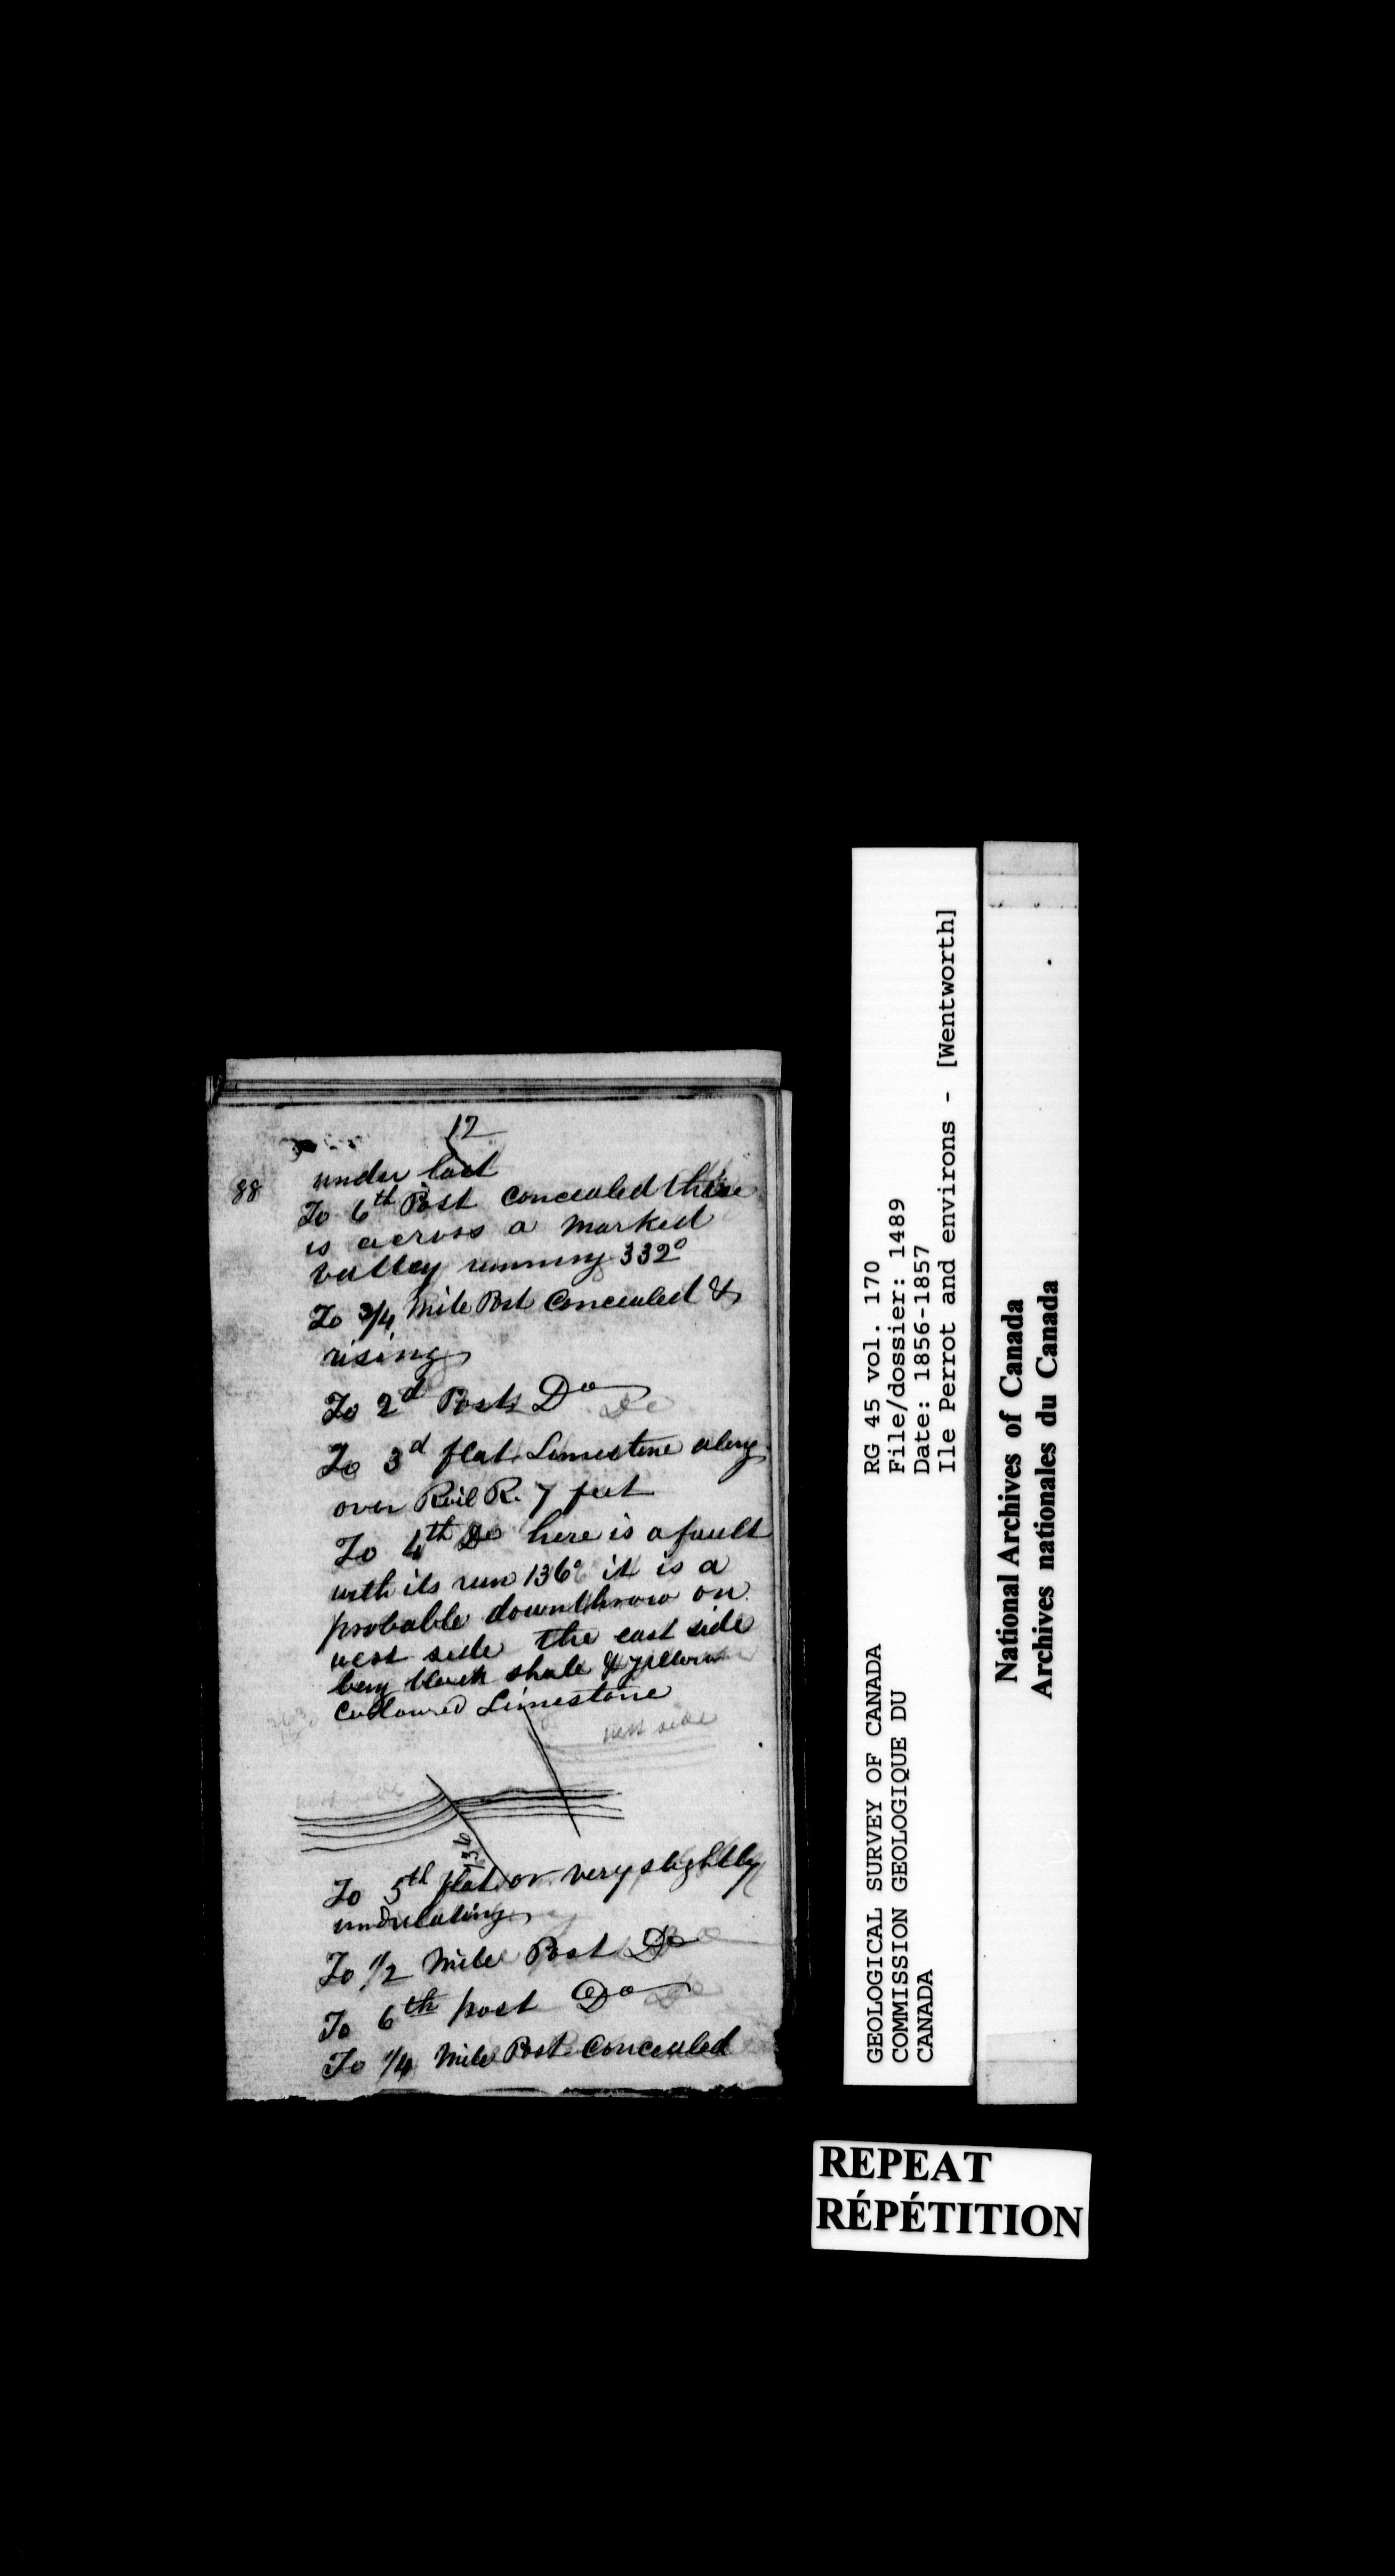 12
88
under last
To 6th Post concealed this
is across a marked
valley running 332°
To 3/4 Mile Post Concealed &
rising
To 2d Post Do
To 3d flat Limestone along
over Rail R. 7 feet
To 4th Do here is a fault
with its run 136° it is a
probable downthrow on
west side the east side
beg black shale & yellow
Colloured Limestone
west side
136
To 5th flat or very slightly
undulating
To 1/2 Mile Post Do
To 6th post Do
To 1/4 Mile Post Concealed
RG 45 vol. 170
File/dossier: 1489
Date: 1856-1857
Ile Perrot and environs - [Wentworth]
GEOLOGICAL SURVEY OF CANADA
COMMISSION GEOLOGIQUE DU
CANADA
National Archives of Canada
Archives nationales du Canada
REPEAT
RÉPÉTITION